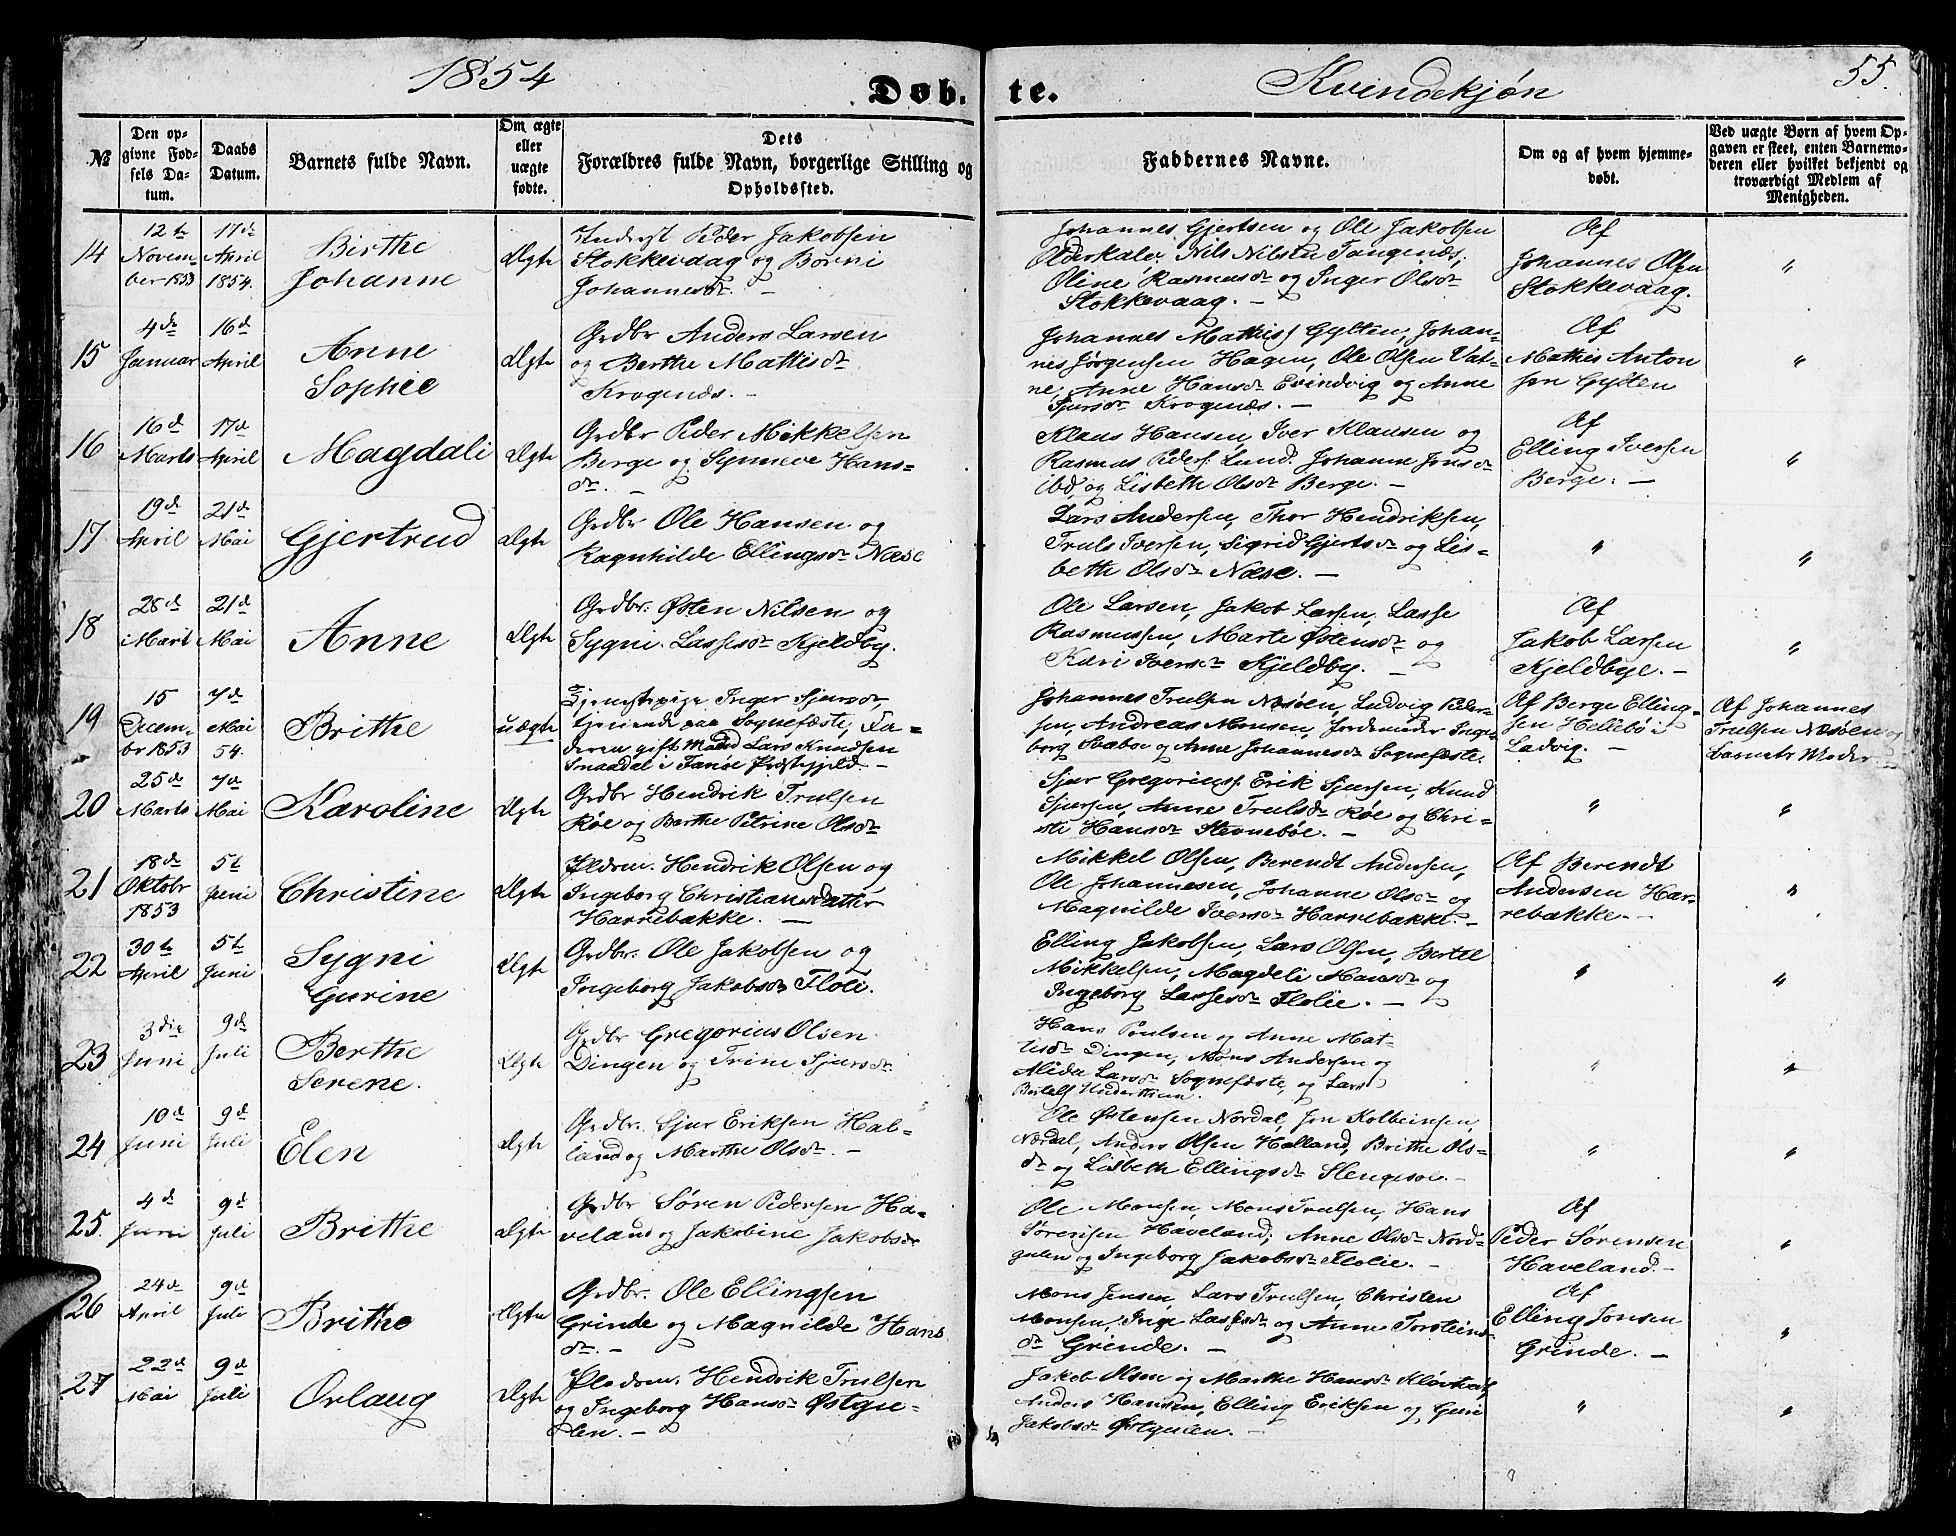 1854
Døb-te.
Kvindekjøn
55.
№
Den op-
givne Fød-
sels Da-
tum.
Daabs
Datum.
Barnets fulde Navn.
Om ægte
eller
uægte
fødte.
Dets
Forældres fulde Navn, borgerlige Stilling og
Opholdssted.
Faddernes Navne.
Om og af hvem hjemme-
døbt.
Ved uægte Børn af hvem Op-
gaven er skeet, enten Barnemo-
deren eller hvilket bekjendt og
troværdigt Medlem af
Menigheden.
14
12te
Novem-
ber 1853
17de
April
1854.
Birthe
Johanne
Ægte
Inderst Peder Jakobsen
Stokkevaag og
Johannesdr. -
Johannes Gjertsen og Ole Jakobsen
Nils Nilsen Tangenæs,
Oline Rasmusdr og Inger Olsdr
Stokkevaag. -
Af
Johannes Olsen
Stokkevaag.
"
15
4de
Januar
16de
April
Anne
Sophie
Ægte
Grdbr Anders Larsen
og Berthe Mattisdr
Kragenæs. -
Johannes Mathiss Gylten, Johan-
nes Jørgensen Hagen, Ole Olsen Vat-
ne, Anne Hansdr Evindvig og Anne
Sjursdr Kragenæs. -
Af
Mathis Anton
sen Gylten
"
16
16de
Marts
17de
April
Magdali
Ægte
Grdbr Peder Mikkelsen
Berge og Synneve Hans-
dr. -
Klaus Hansen, Iver Klausen og
Rasmus Peders. Lund. Johanne Jonsdr
ibd, og Lisbeth Olsdr Berge. -
Af
Elling Iversen
Berge. -
"
17
19de
April
21de
Mai
Gjertrud
Ægte
Grdbr Ole Hansen og
Ragnhilde Ellingsdr Næse
Lars Andersen, Thor Hendriksen,
Truls Iversen, Sigrid Gjertsdr og Lis-
beth Olsdr Næse. -
"
"
18
28de
Marts
21de
Mai
Anne
Ægte
Grdbr. Østen Nilsen og
Sygni Lassesdr Kjeldby.
Ole Larsen, Jakob Larsen, Lasse
Rasmussen, Marte Østensdr og
Kari Iversdr Kjeldby. -
Af
Jakob Larsen
Kjeldbye. -
"
19
15
Decem-
ber 1853
7de
Mai
54.
Brithe
uægte
Tjenestepige Inger Sjursdr,
tjenende paa Sognefæste, Fa-
deren gift Mand Lars Knudsen
Smaadal i Fanøe Præstegjeld. -
Johannes Trulsen Nesøen, Ludvig Peder-
sen, Andreas Monsen, Jordemoder Inge-
borg Svabøe og Anne Johannesdr Sognefæste.
Af Berge Elling-
sen Hellebø i
Ladvig. -
Af Johannes
Trulsen Nesøen og
barnets Moder -
20
25de
Marts
7de
Mai
Karoline
Ægte
Grdbr Hendrik Trulsen
Røe og Berthe Petrine Olsdr
Sjur Gregoriuss. Erik Sjursen, Knud
Sjursen, Anne Trulsdr Røe og Chri-
sti Hansdr Stevnebøe. -
"
"
21
18de
Oktobr
1853
5te
Juni
Christine
Ægte
Pladsm. Hendrik Olsen og
Ingeborg Christiansdatter
Harrebække. -
Mikkel Olsen, Berendt Andersen,
Ole Johannesen, Johanne Olsdr og
Magnilde Iversdr Harrebække. -
Af Berendt
Andersen Har-
rebække. -
"
22
30te
April
5te
Juni
Sygni
Gurine
Ægte
Grdbr. Ole Jakobsen og
Ingeborg Jakobsdr Floli.
Elling Jakobsen, Lars Olsen, Bertel
Mikkelsen, Magdeli Hansdr og
Ingeborg Lassesdr Flolie. -
"
"
23
3die
Juni
9de
Juli
Berthe
Serene.
Ægte
Grdbr Gregorius Olsen
Dingen og Trine Sjursdr.
Hans Poulsen og Anne Mat-
tisdr Dingen, Mons Andersen og
Alida Larsdr Sognefæste, og Lars
"
"
24
10de
Juni
9de
Juli
Elen
Ægte
Grdbr. Sjur Eriksen Hal-
land og Marthe Olsdr. -
Ole Østensen Nordal, Jon Kolbeinsen,
Nordal, Anders Olsen Halland, Brithe Ols-
dr og Lisbeth Ellingsdr Slengesol. -
"
"
25.
4de
Juni
9de
Juli
Brithe
Ægte
Grdbr Søren Pedersen Ha-
veland og Jakobine Jakobsdr
Ole Monsen, Mons Trulsen, Hans
Sørensen Haveland, Anne Olsdr Nord-
gulen og Ingeborg Jakobsdr Flolie. -
Af
Peder Sørensen
Haveland. -
"
26
24de
April
9de
Juli
Brithe
Ægte
Grdbr. Ole Ellingsen
Grinde og Magnilde Hans
dr. -
Mons Jensen, Lars Trulsen, Christen
Monsen, Inge Lassesdr og Anne Torsteins-
dr Grinde. -
Af
Elling Jonsen
Grinde. -
"
27
22de
Mai
9de
Juli
Orlaug
Ægte
Pladsm. Hendrik Trulsen
og Ingeborg Hansdr Østgu-
len. -
Jakob Olsen og Marthe Hansdr
Anders Hansen, Elling Eriksen og Guri
Jakobsdr Østgulen. -
"
"